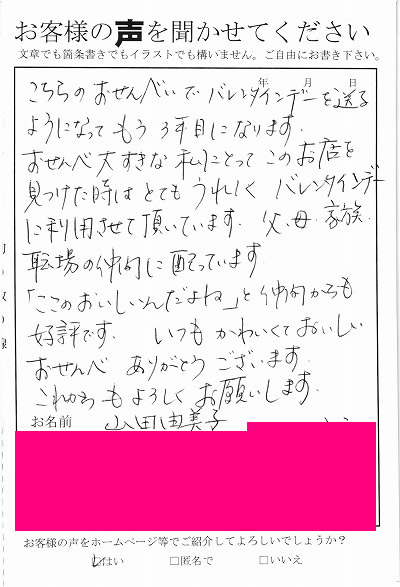 お客様の声を聞かせてください
文章でも箇条書きでもイラストでも構いません。ご自由にお書き下さい。
年 月 日
こちらのおせんべいでバレンタインデーを送る
ようになってもう3年目になります.
おせんべ大すきな私にとってこのお店を
見つけた時はとてもうれしく バレンタインデー
に利用させて頂いています. 父.母.家族.
職場の仲間に配っています
「ここのおいしいんだよね」と仲間からも
好評です. いつもかわいくておいしい
おせんべ ありがとうございます.
これからもよろしくお願いします.
お名前 山田由美子
お客様の声をホームページ等でご紹介してよろしいでしょうか?
はい □匿名で □いいえ